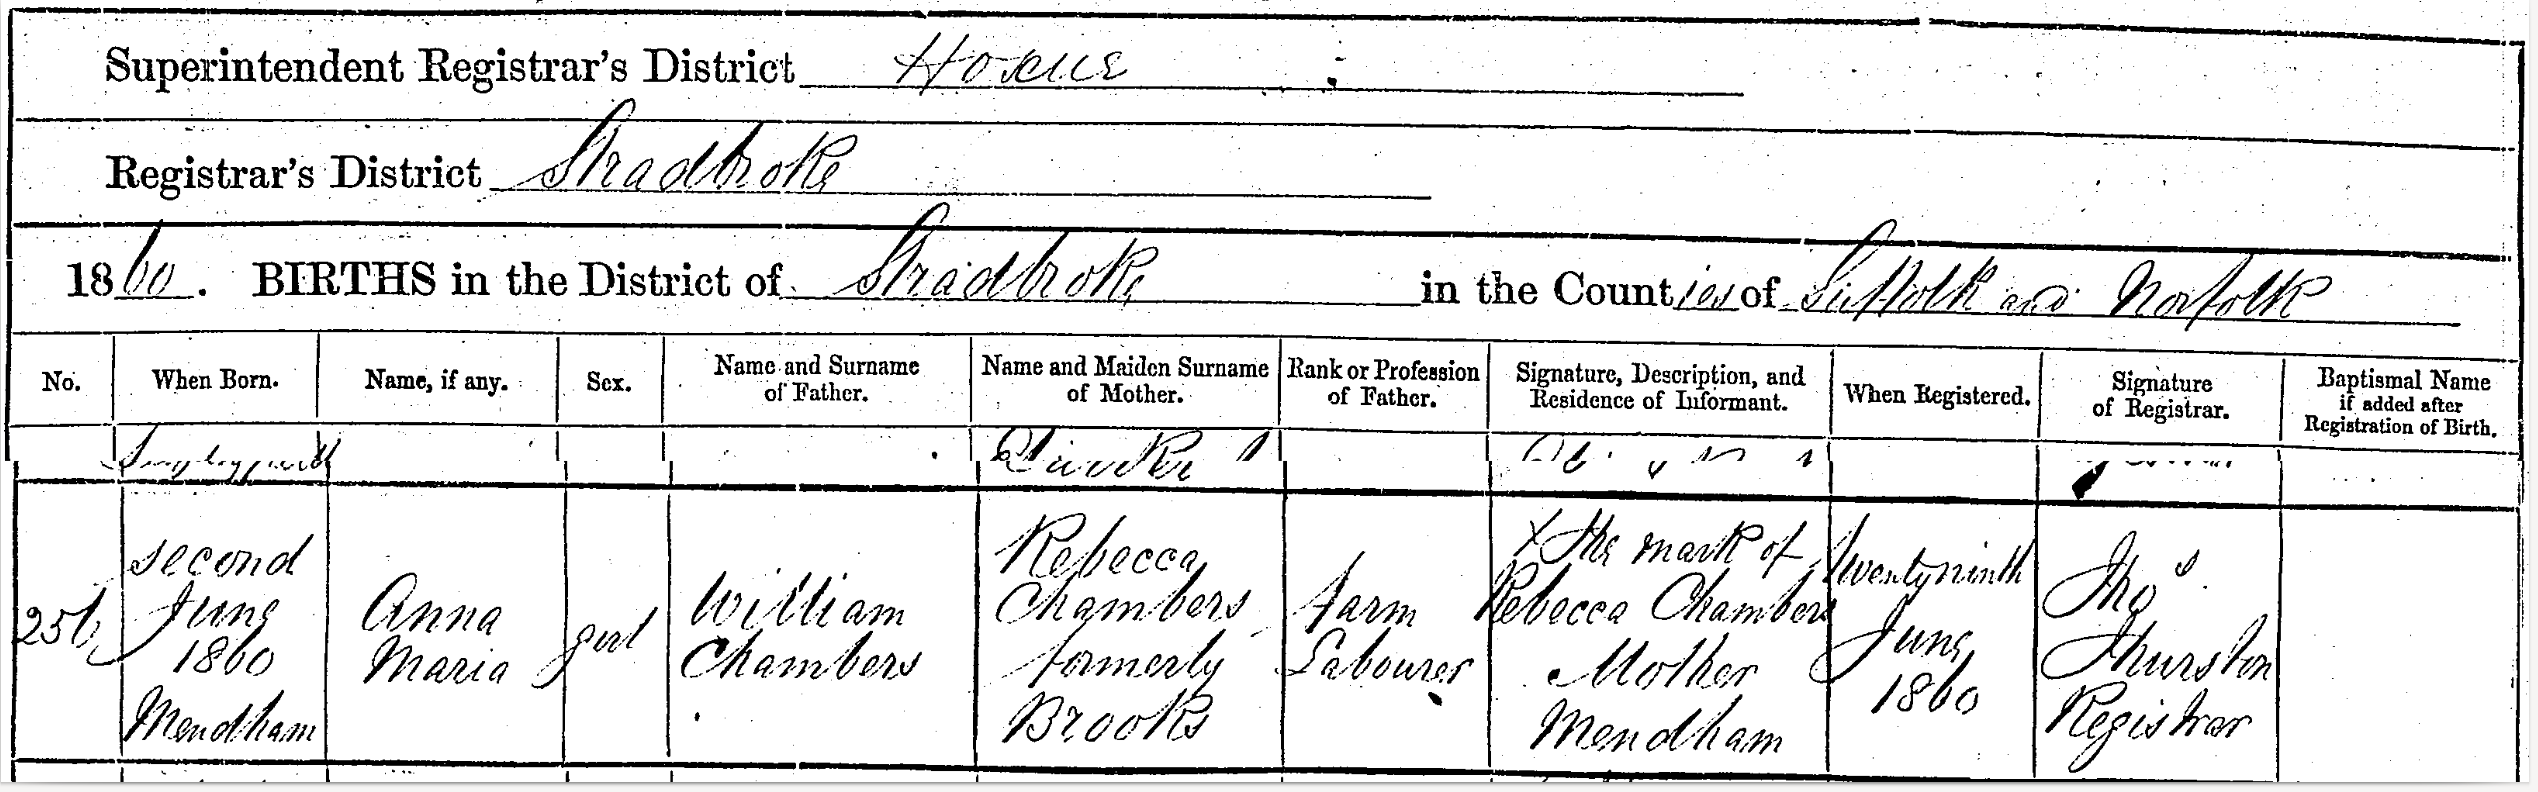 Superintendent Registrar's District Hoxne
Registrar's District Stradbroke
1860. BIRTHS in the District of Stradbroke in the Counties of Suffolk and Norfolk
No.
When Born.
Name, if any.
Sex.
Name and Surname
of Father.
Name and Maiden Surname
of Mother.
Rank or Profession
of Father.
Signature, Description, and
Residence of Informant.
When Registered.
Signature
of Registrar.
Baptismal Name
if added after
Registration of Birth.
256
second
June
1860
Mendham
Anna
Maria
girl
William
Chambers
Rebecca
Chambers
formerly
Brooks
Farm
Labourer
X The mark of
Rebecca Chambers
Mother
Mendham
Twentyninth
June
1860
Thos
Thurston
Registrar